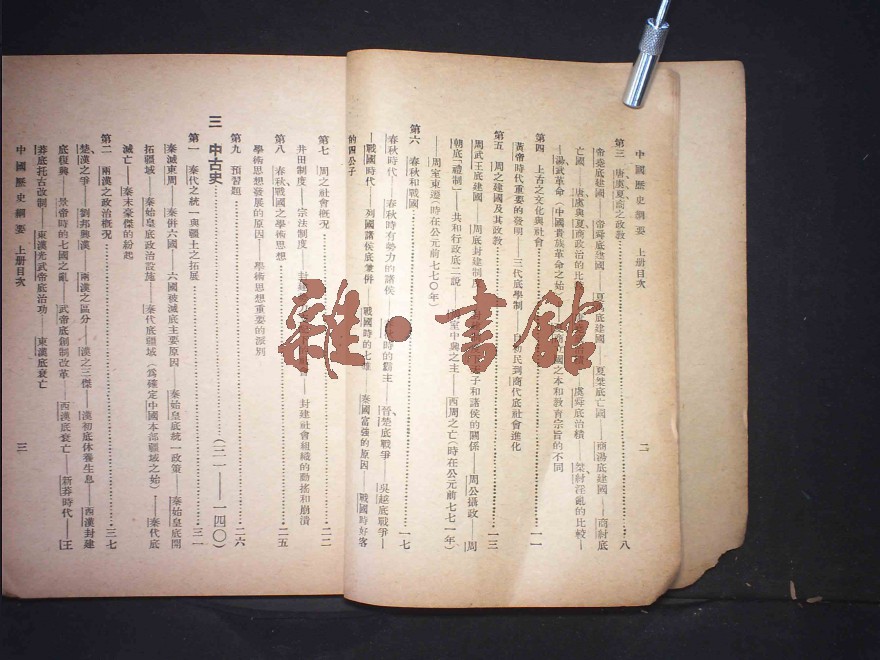 中國歷史綱要 上册目次
二
第三 唐虞夏商之政教……八
帝堯底建國——帝舜底建國——夏禹底建國——夏桀底亡國——商湯底建國——商紂底
亡國——唐虞與夏商政治的比較 虞舜底治績——桀紂淫亂的比較—
—湯武革命（中國貴族革命之始） 立國之本和教育宗旨的不同
第四 上古之文化與社會……一一
黃帝時代重要的發明——三代底學制 初民到商代底社會進化
第五 周之建國及其政教……一三
周武王底建國——周底封建制度 子和諸侯的關係——周公攝政——周
朝底「禮制」——共和行政底二說 室中興之主——西周之亡（時在公元前七七一年）
——周室東遷（時在公元前七七〇年）
第六 春秋和戰國……一七
春秋時代——春秋時有勢力的諸侯 時的霸主——晉、楚底戰爭——吳越底戰爭—
—戰國時代——列國諸侯底兼併——戰國時的七雄——秦國富強的原因——戰國時好客
的四公子
第七 周之社會概況……二二
井田制度——宗法制度——封建 封建社會組織的動搖和崩潰
第八 春秋、戰國之學術思想……二五
學術思想發展的原因——學術思想重要的派別
第九 預習題……二六
三 中古史……（三一——一四〇）
第一 秦代之統一與疆土之拓展……三一
秦滅東周——秦併六國——六國被滅底主要原因——秦始皇底統一政策——秦始皇底開
拓疆域——秦始皇底政治設施——秦代底疆域（爲確定中國本部疆域之始）——秦代底
滅亡——秦末豪傑的紛起
第二 兩漢之政治概況……三七
楚、漢之爭——劉邦興漢——兩漢之區分——漢之三傑——漢初底休養生息——西漢封建
底復興——景帝時的七國之亂——武帝底創制改革——西漢底衰亡——新莽時代——王
莽底托古改制——東漢光武帝底治功——東漢底衰亡
中國歷史綱要 上册目次
三
雜·書館